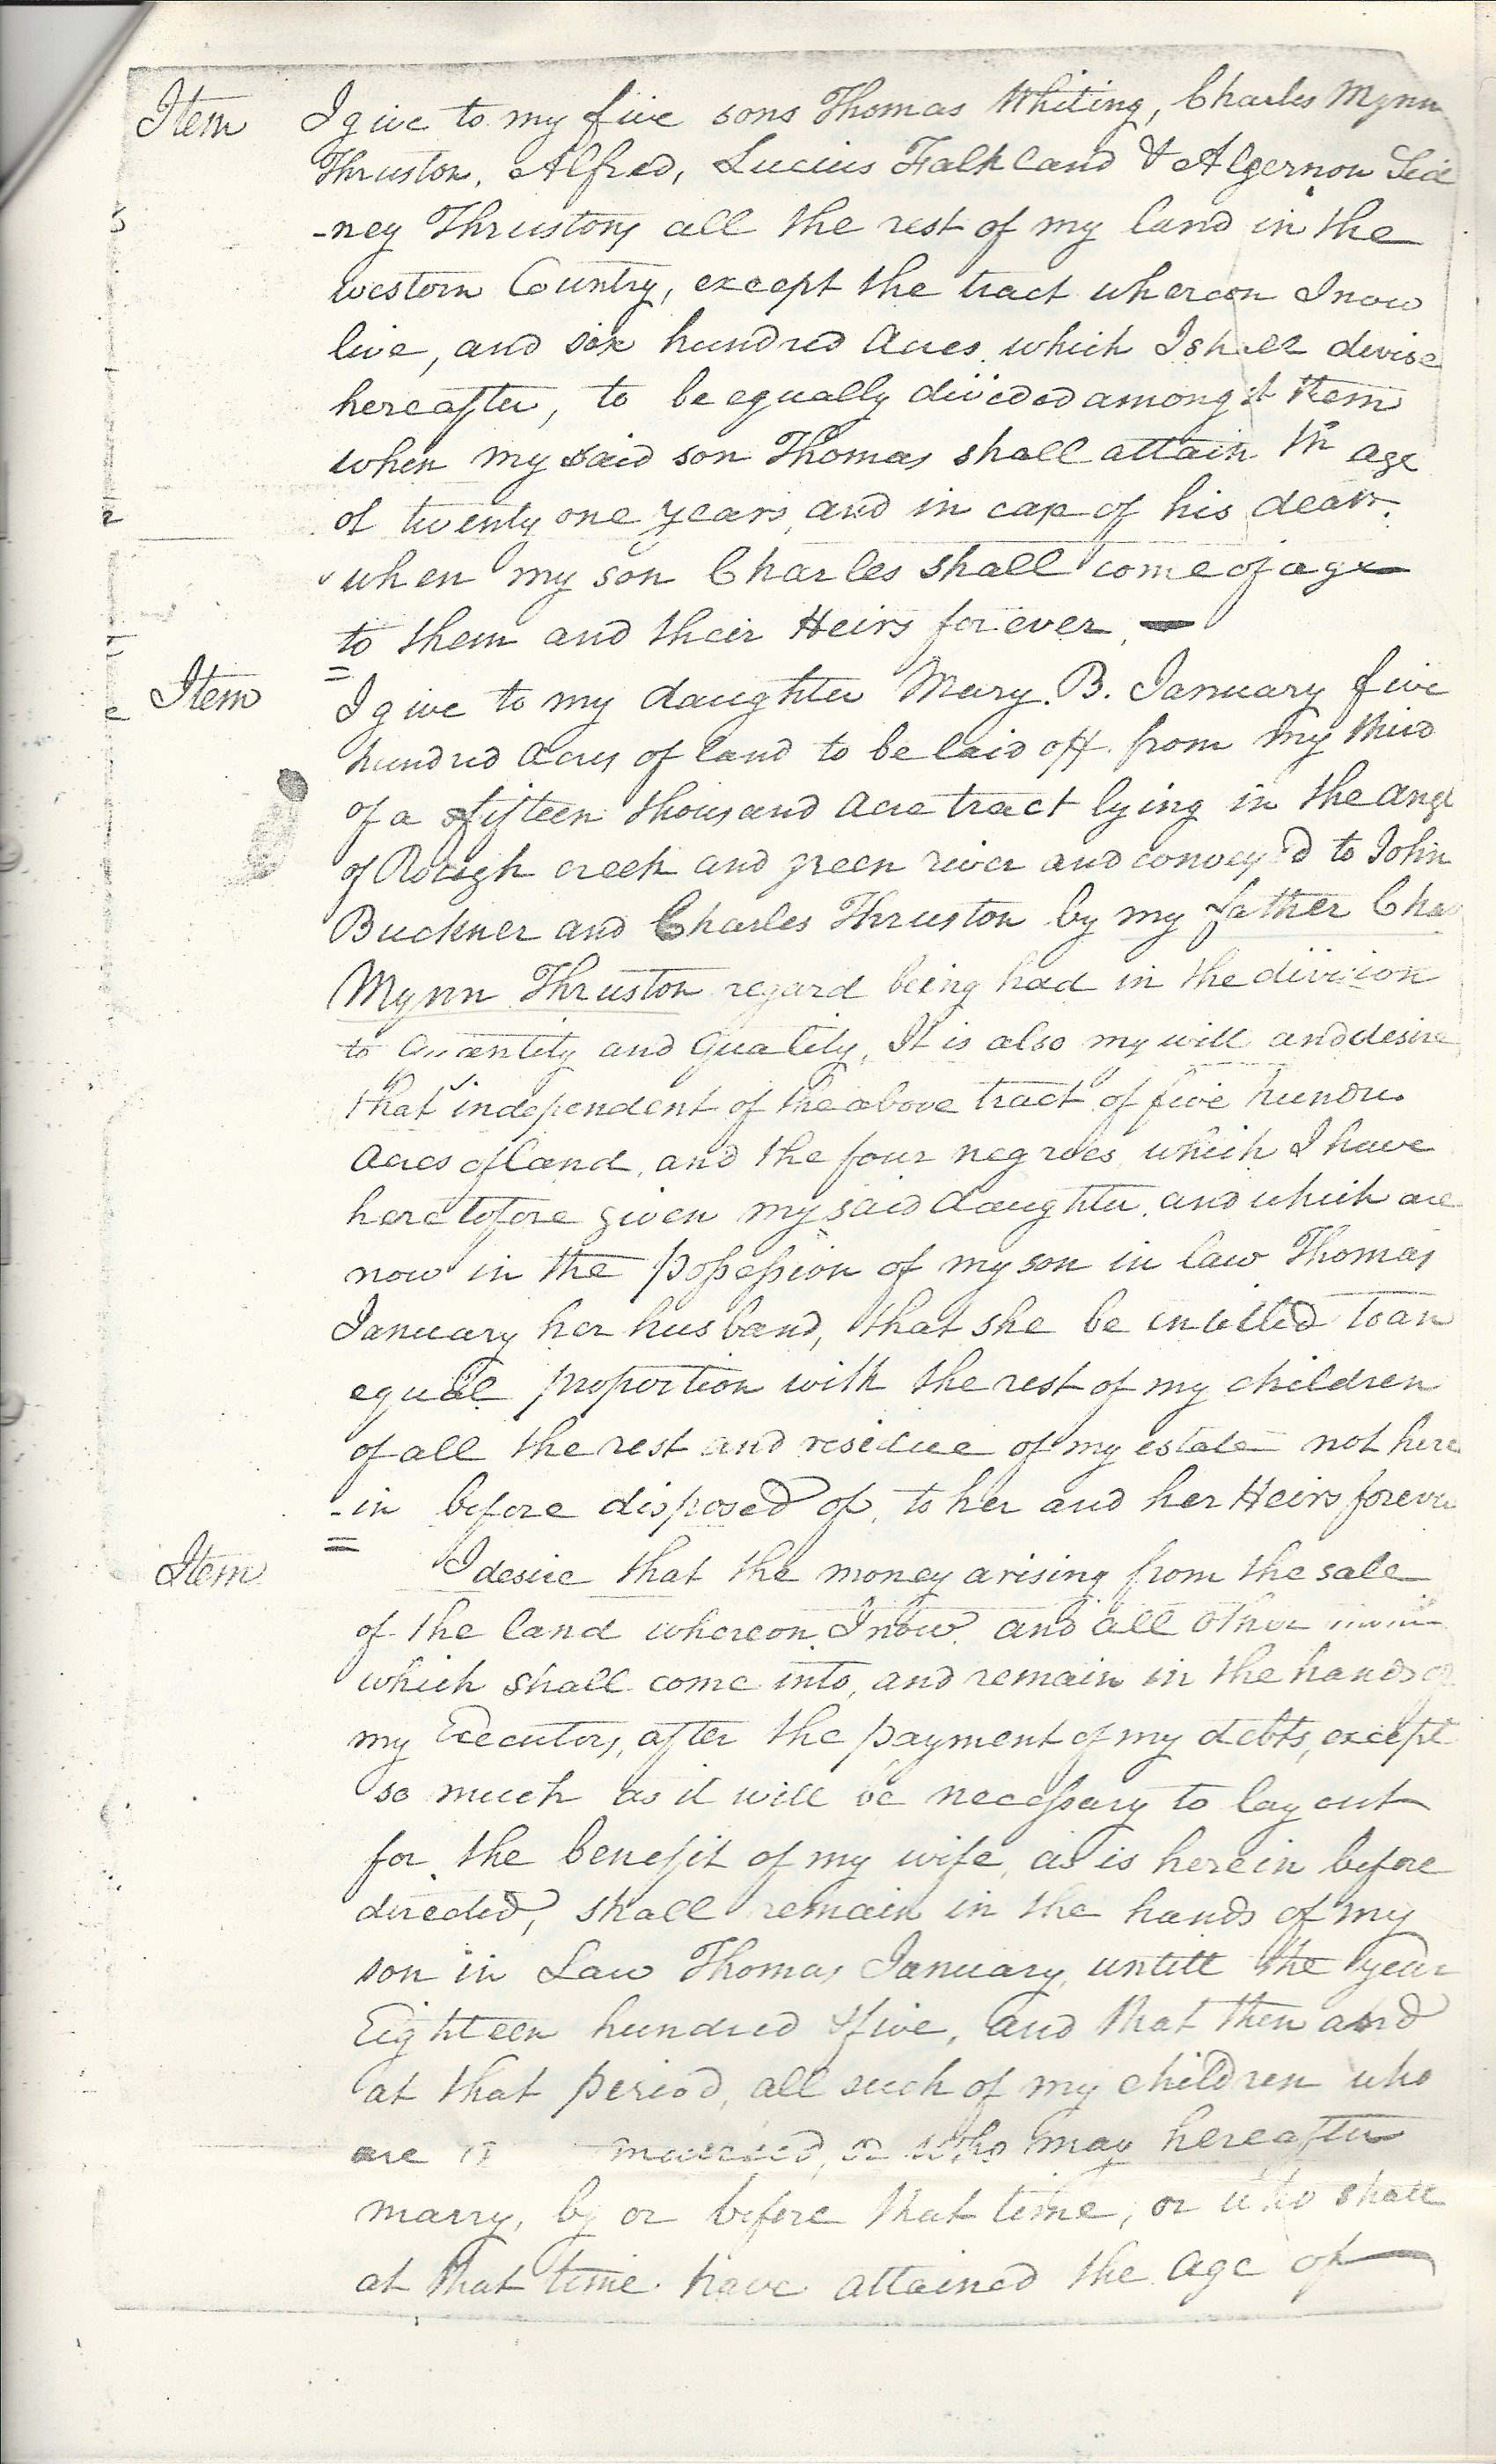 Item I give to my five sons Thomas Whiting, Charles Mynn
Thruston, Alfred, Lucius Falkland & Algernon Sid
-ney Thruston, all the rest of my land in the
western Country, except the tract whereon I now
live, and six hundred Acres which I shall devise
hereafter, to be equally divided amongst them
when my said son Thomas shall attain th age
of twenty one years, and in case of his death.
when my son Charles shall come of age
to them and their Heirs for ever. —
Item I give to my daughter Mary B. January five
hundred Acres of land to be laid off from my third
of a fifteen thousand Acre tract lying in the Angl
of Rough creek and green river and convey'd to John
Buckner and Charles Thruston by my father Chas
Mynn Thruston regard being had in the division
to Quantity and Quality, It is also my will and desire
that independent of the above tract of five hundre
Acres of land, and the four negroes which I have
heretofore given my said daughter, and which are
now in the possession of my son in law Thomas
January her husband, that she be intitled to an
equal proportion with the rest of my children
of all the rest and residue of my estate not here
-in before disposed of, to her and her Heirs forever
Item I desire that the money arising from the sale
of the land whereon I now and all other
which shall come into, and remain in the hands of
my Executors, after the payment of my debts, except
so much as it will be necessary to lay out
for the benefit of my wife, as is herein before
directed, shall remain in the hands of my
son in Law Thomas January, untill the year
Eighteen hundred & five, and that then and
at that period, all such of my children who
are married, or who may hereafter
marry, by or before that time, or who shall
at that time have attained the Age of